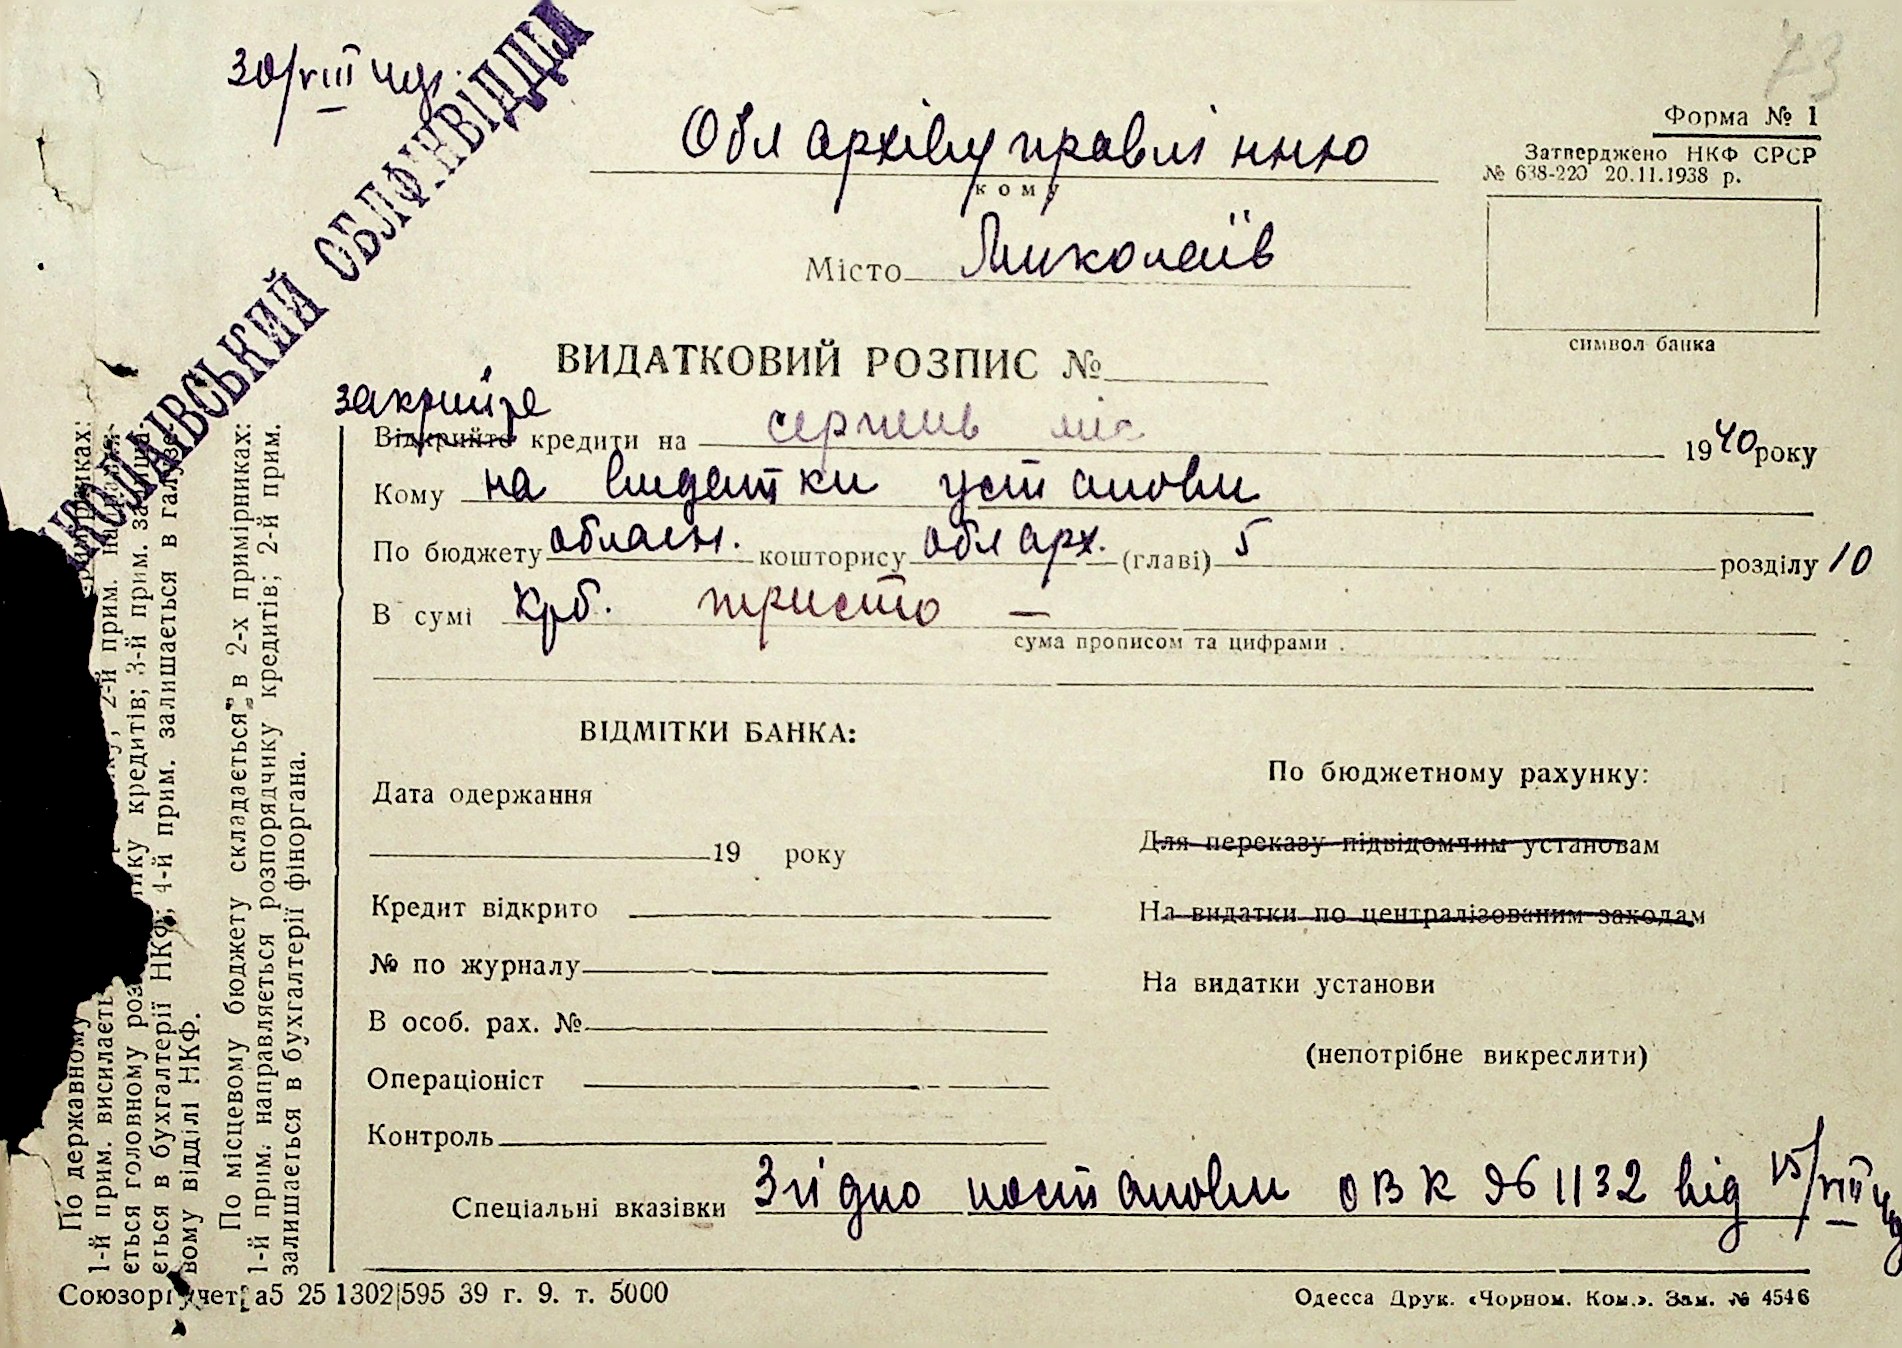 73
30/VIII 40
МИКОЛАЇВСЬКИЙ ОБЛФІНВІДДІЛ
Форма № 1
Затверджено НКФ СРСР
№ 638-220 20.11.1938 р.
Обл архівуправлінню
кому
Місто Миколаїв
символ банка
ВИДАТКОВИЙ РОЗПИС №
закрийте
Відкрийте кредити на серпень міс 1940 року
Кому на видатки установи
По бюджету обласн. кошторису обл арх. (главі) 5 розділу 10
В сумі крб. триста —
сума прописом та цифрами
ВІДМІТКИ БАНКА:
Дата одержання
19 року
Кредит відкрито
№ по журналу
В особ. рах. №
Операціоніст
Контроль
По бюджетному рахунку:
Для переказу підвідомчим установам
На видатки по централізованим заходам
На видатки установи
(непотрібне викреслити)
Спеціальні вказівки Згідно постанови ОВК № 1132 від 15/VIII 40
По державному
1-й прим. висилаєть 2-й прим. направля-
ється головному роз кредитів; 3-й прим. залиша-
ється в бухгалтерії НКФ; 4-й прим. залишається в галузе-
вому відділі НКФ.
По місцевому бюджету складається в 2-х примірниках:
1-й прим. направляється розпорядчику кредитів; 2-й прим.
залишається в бухгалтерії фіноргана.
Союзоргучет а5 25 1302 595 39 г. 9. т. 5000
Одесса Друк. «Чорном. Ком.». Зам. № 4546